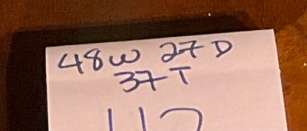 48W 27D
37T